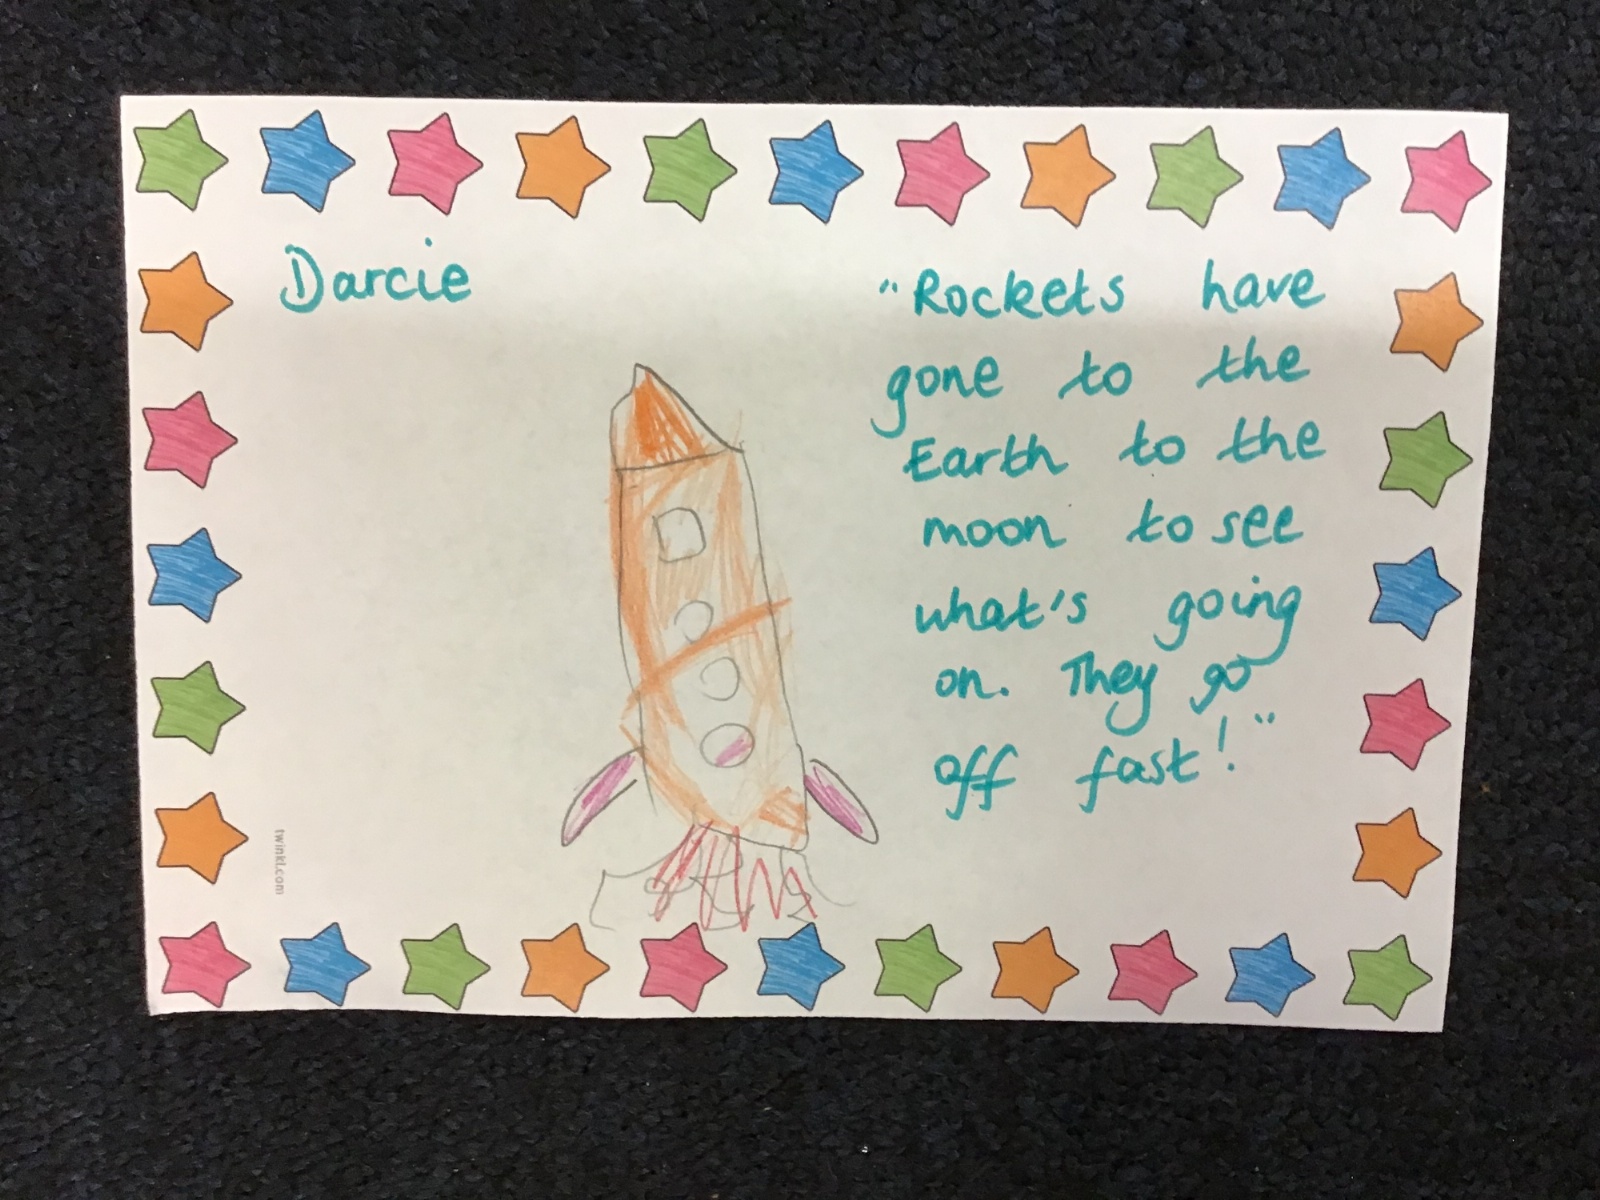 Darcie
"Rockets have
gone to the
Earth to the
moon to see
what's going
on. They go
off fast!"
twinkl.com